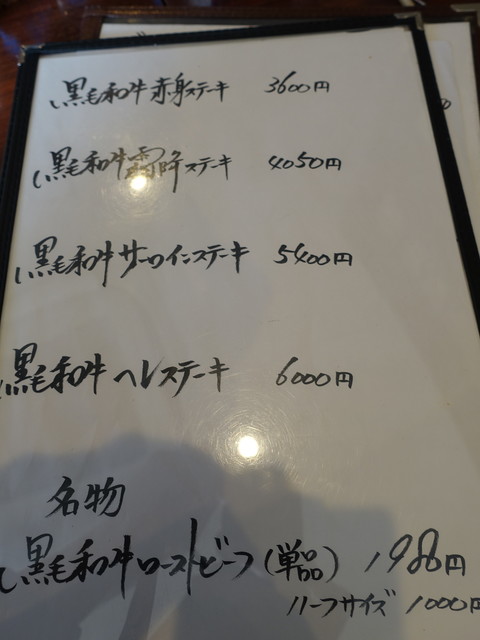 黒毛和牛赤身ステーキ 3600円
黒毛和牛霜降ステーキ 4050円
黒毛和牛サーロインステーキ 5400円
黒毛和牛ヘレステーキ 6000円
名物
黒毛和牛ローストビーフ(単品) 1980円
ハーフサイズ 1000円